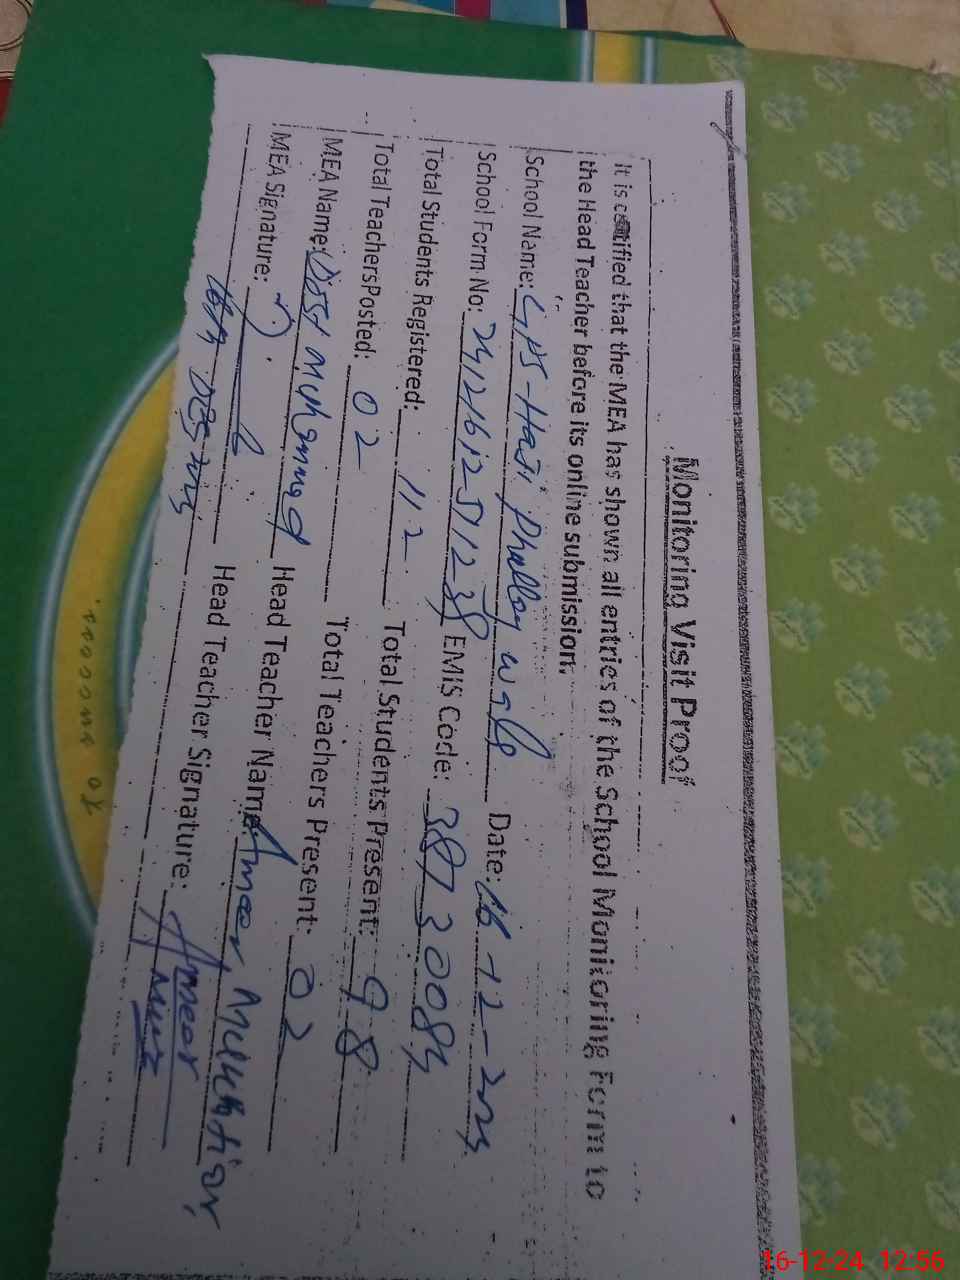 Monitoring Visit Proof
It is certified that the MEA has shown all entries of the School Monitoring Form to
the Head Teacher before its online submission.
School Name: GPS-Haji Phalloy wala Date: 16-12-
School Form No: EMIS Code:
Total Students Registered: 112 Total Students Present: 98
Total Teachers Posted: 02 Total Teachers Present: 02
MEA Name: Dost Muhammad Head Teacher Name: Ameer
MEA Signature: Head Teacher Signature: Ameer
16th
16-12-24 12:56